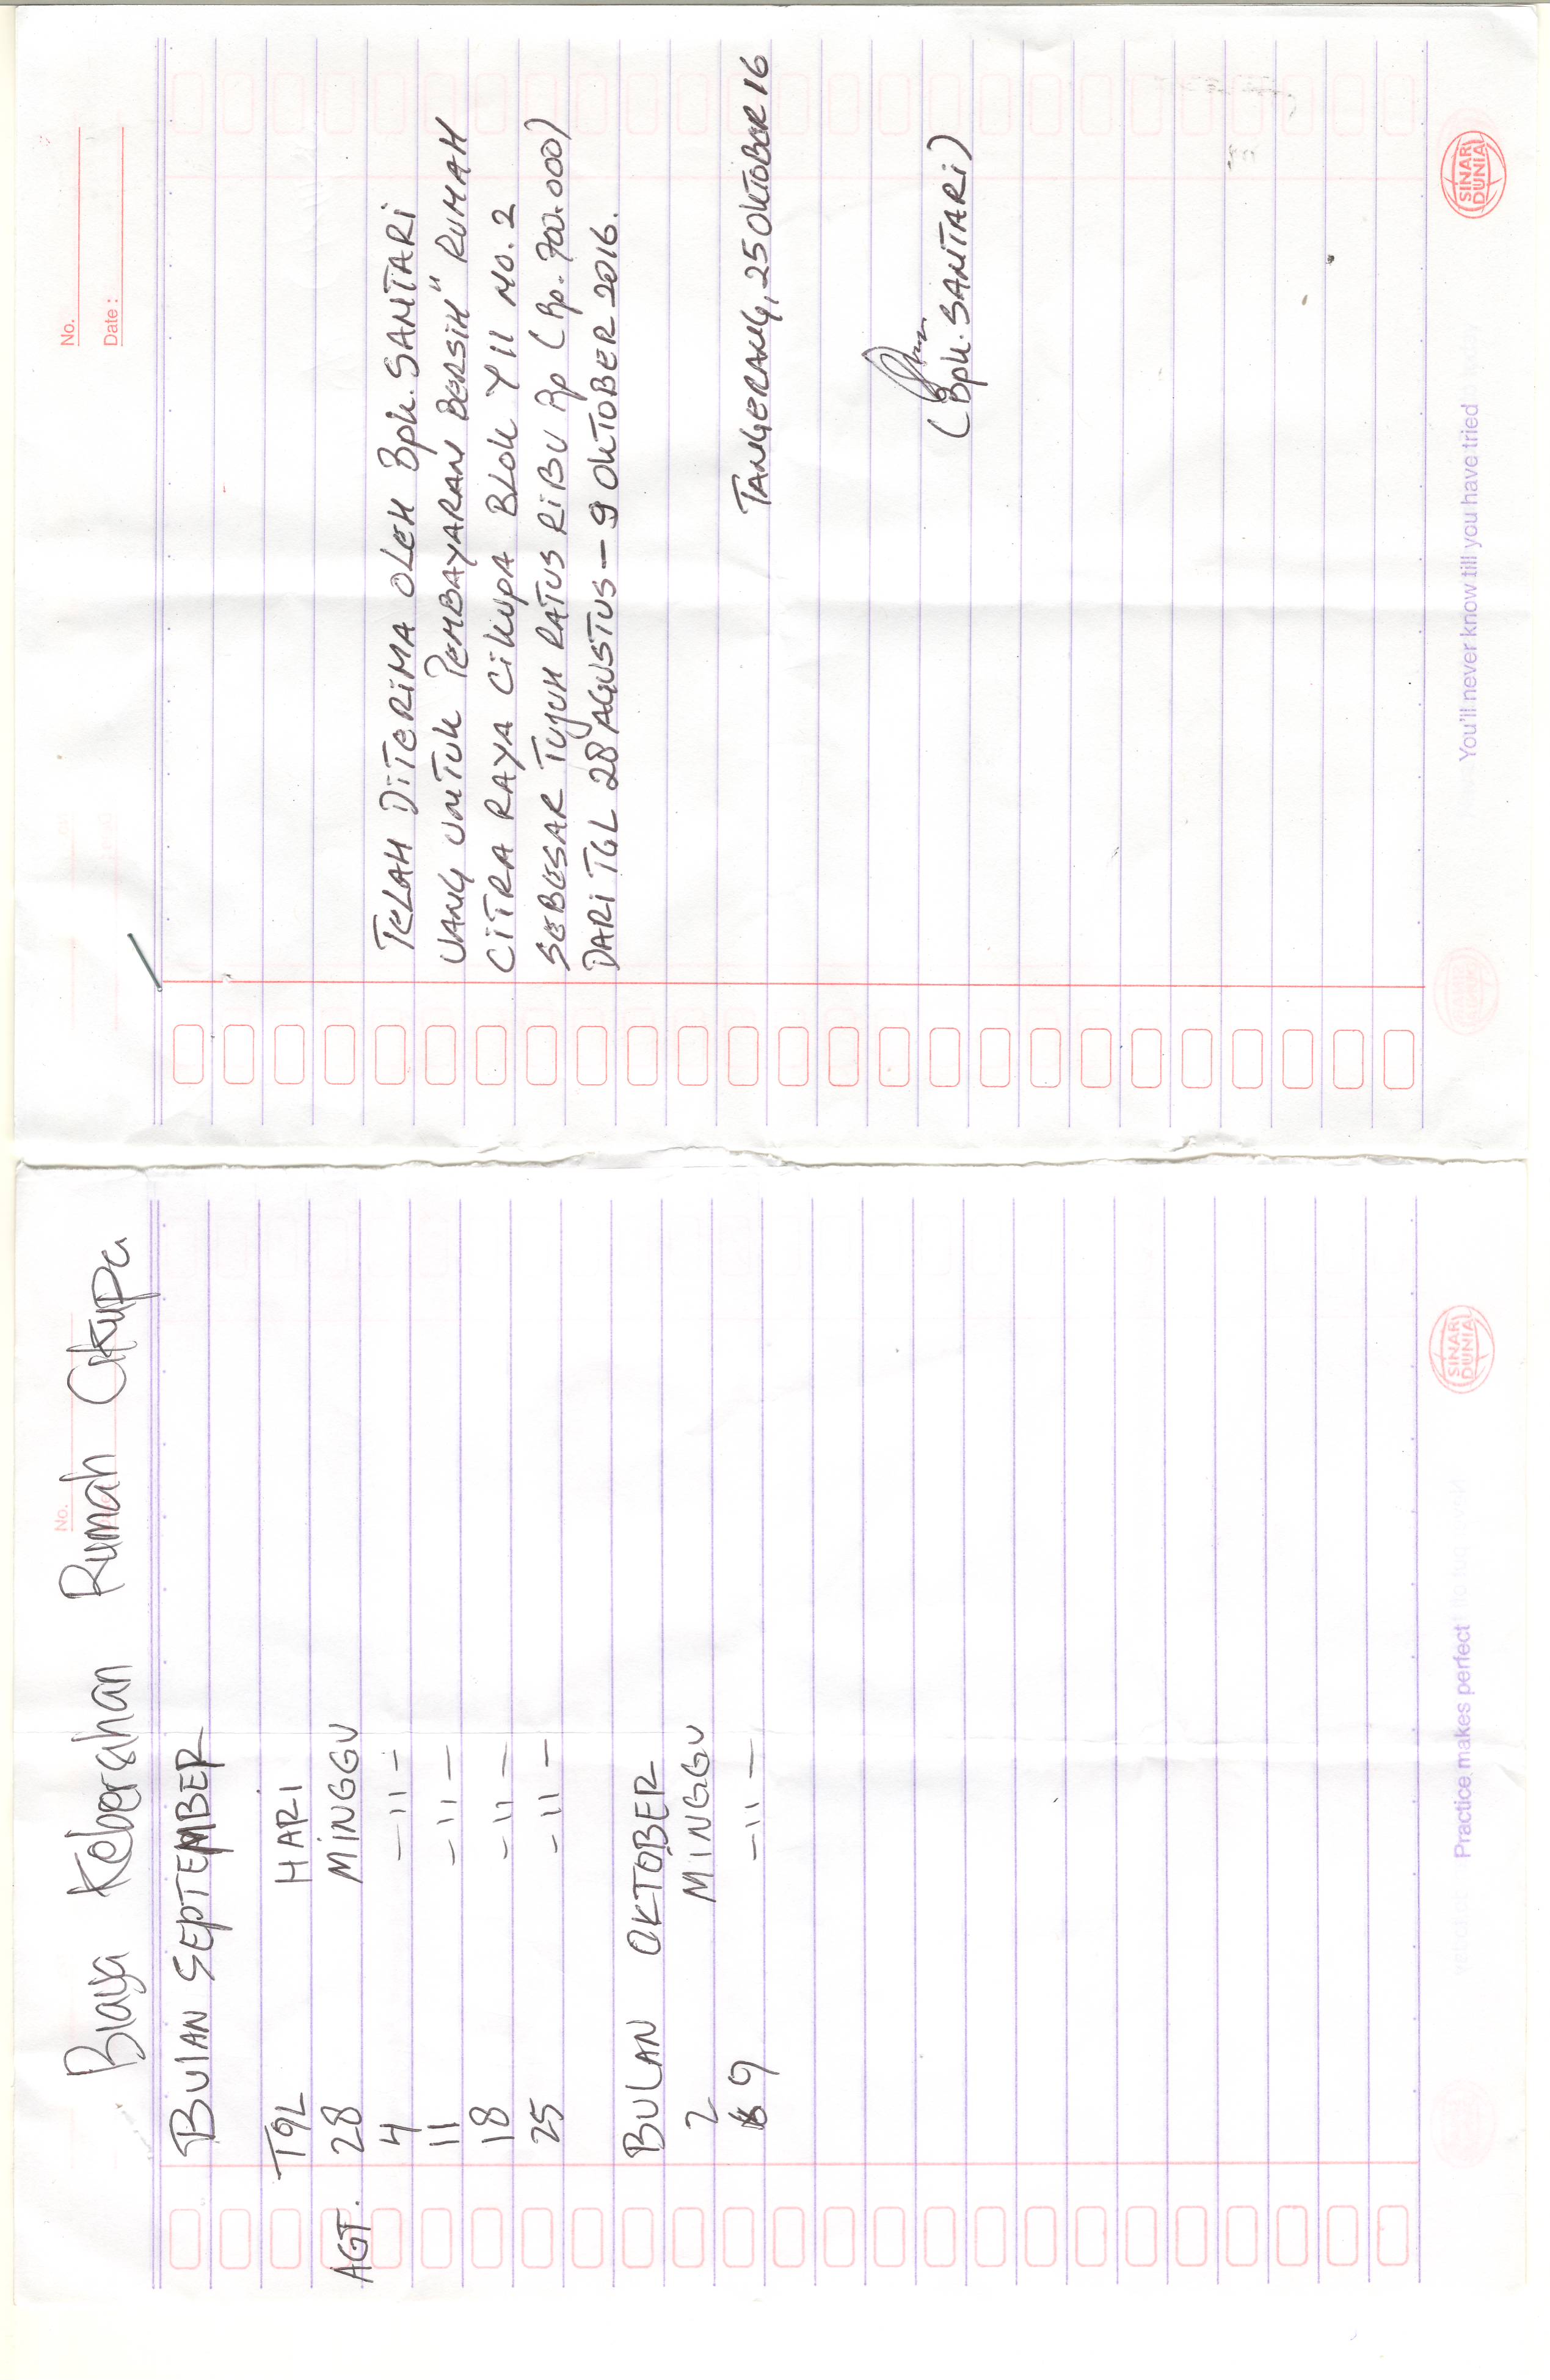 Biaya Kebersihan Rumah Cikupa
No.
BULAN SEPTEMBER
TGL HARI
AGT. 28 MINGGU
4 - 11 -
11 - 11 -
18 - 11 -
25 - 11 -
BULAN OKTOBER
2 MINGGU
9 - 11 -
Practice makes perfect
SINAR DUNIA
No.
Date :
TELAH DITERIMA OLEH Bpk. SANTARI
UANG UNTUK PEMBAYARAN BERSIH" RUMAH
CITRA RAYA CIKUPA BLOK Y 11 NO. 2
SEBESAR TUJUH RATUS RIBU Rp (Rp. 700.000)
DARI TGL 28 AGUSTUS - 9 OKTOBER 2016.
TANGERANG, 25 OKTOBER 16
(Bpk. SANTARI)
You'll never know till you have tried
SINAR DUNIA